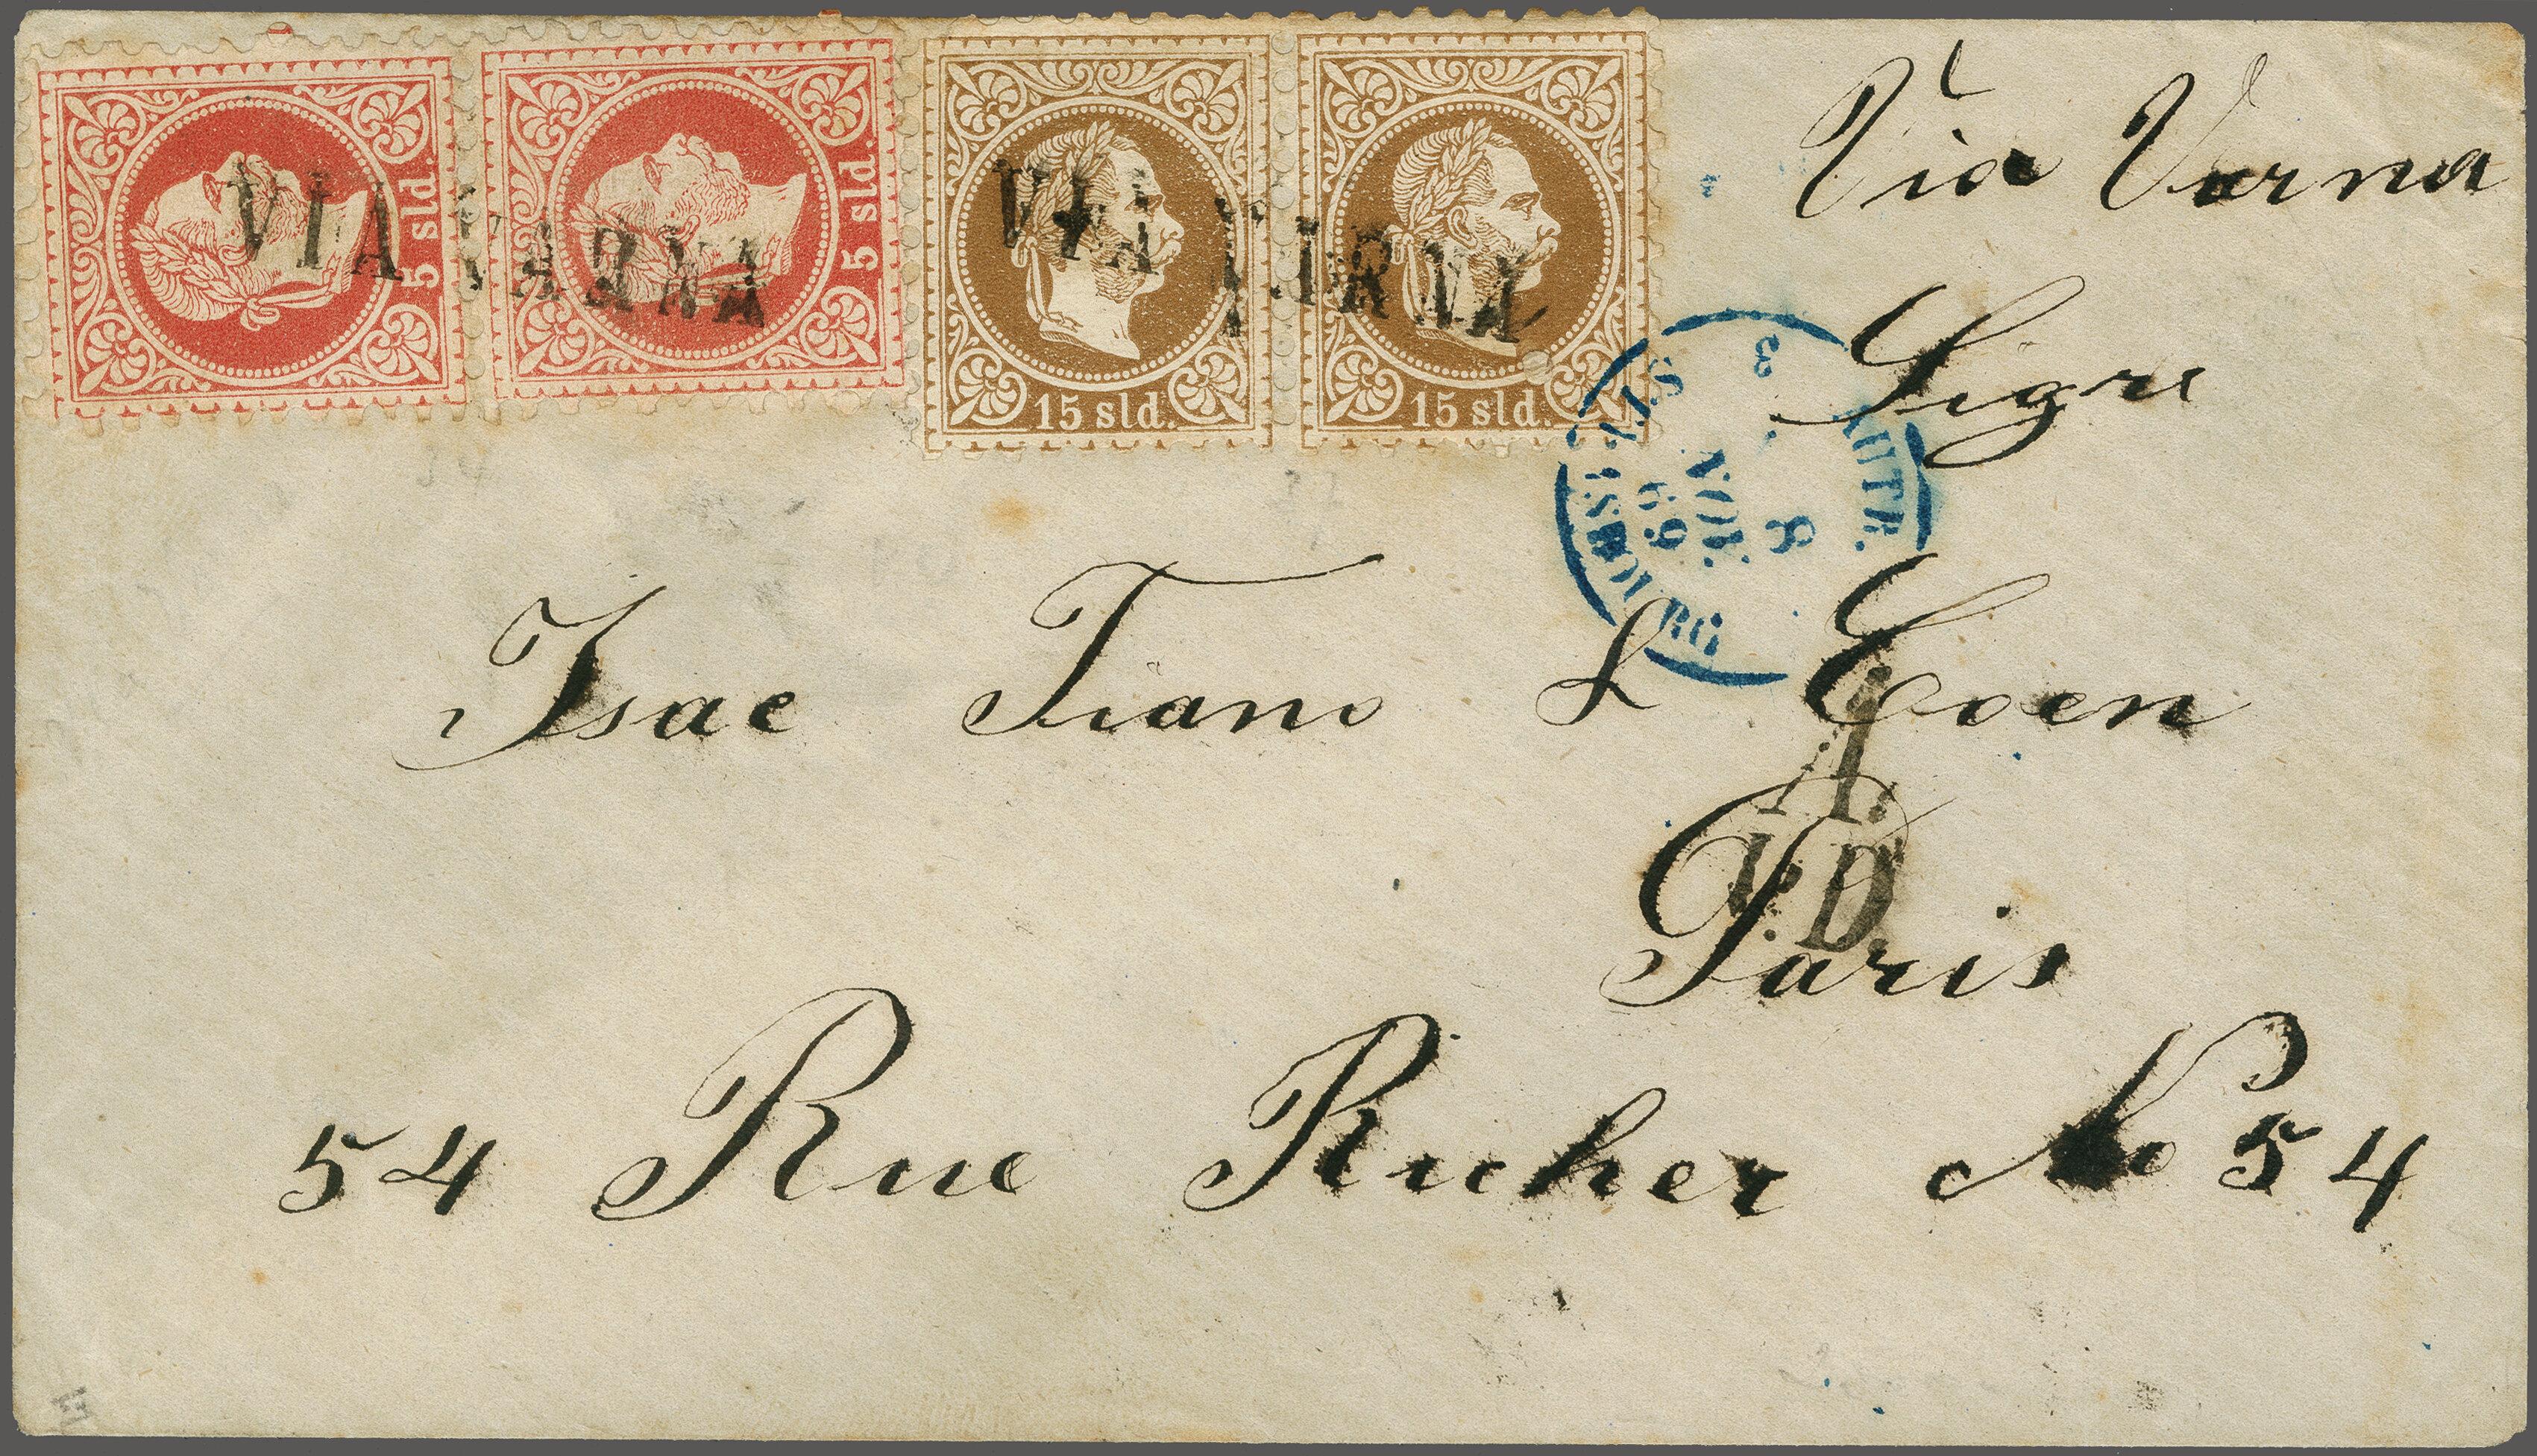 5 sld.
5 sld.
15 sld.
15 sld.
VIA VARNA
VIA VARNA
Via Varna
Sigre
AUTR.
3
8
NOV.
69
STRASBOURG
Isac Tiano & Coen
A.
P.D.
Paris
54 Rue Richer No 54